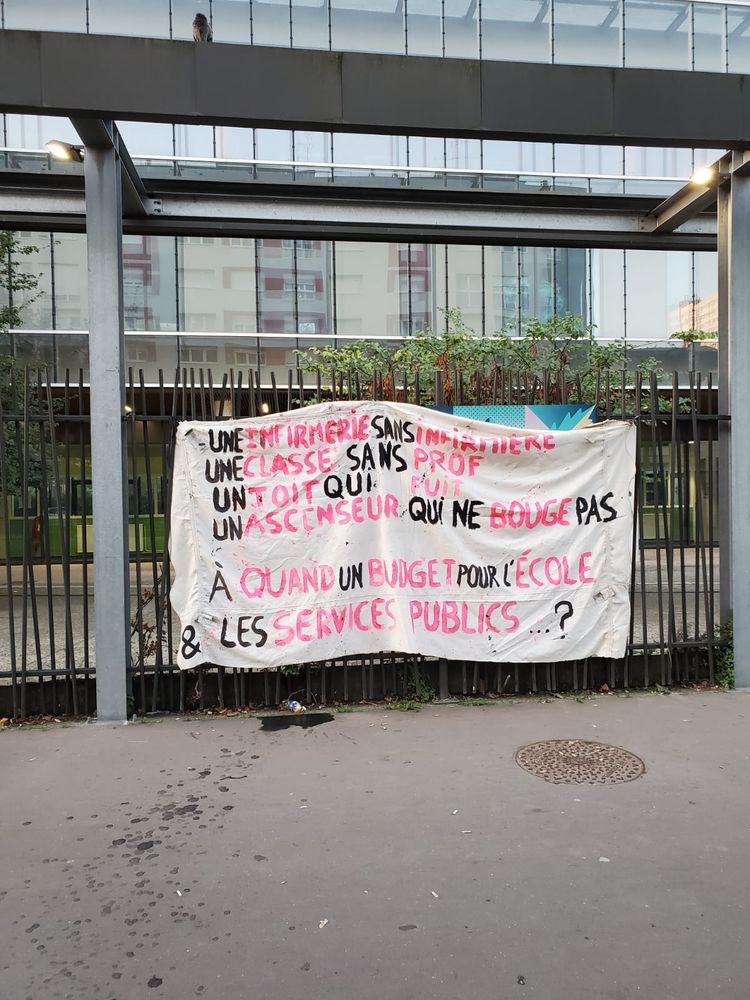 - UNE INFIRMERIE SANS INFIRMIÈRE
UNE CLASSE SANS PROF
UN TOIT QUI FUIT
UN ASCENSEUR QUI NE BOUGE PAS
À QUAND UN BUDGET POUR L'ÉCOLE
& LES SERVICES PUBLICS ...?